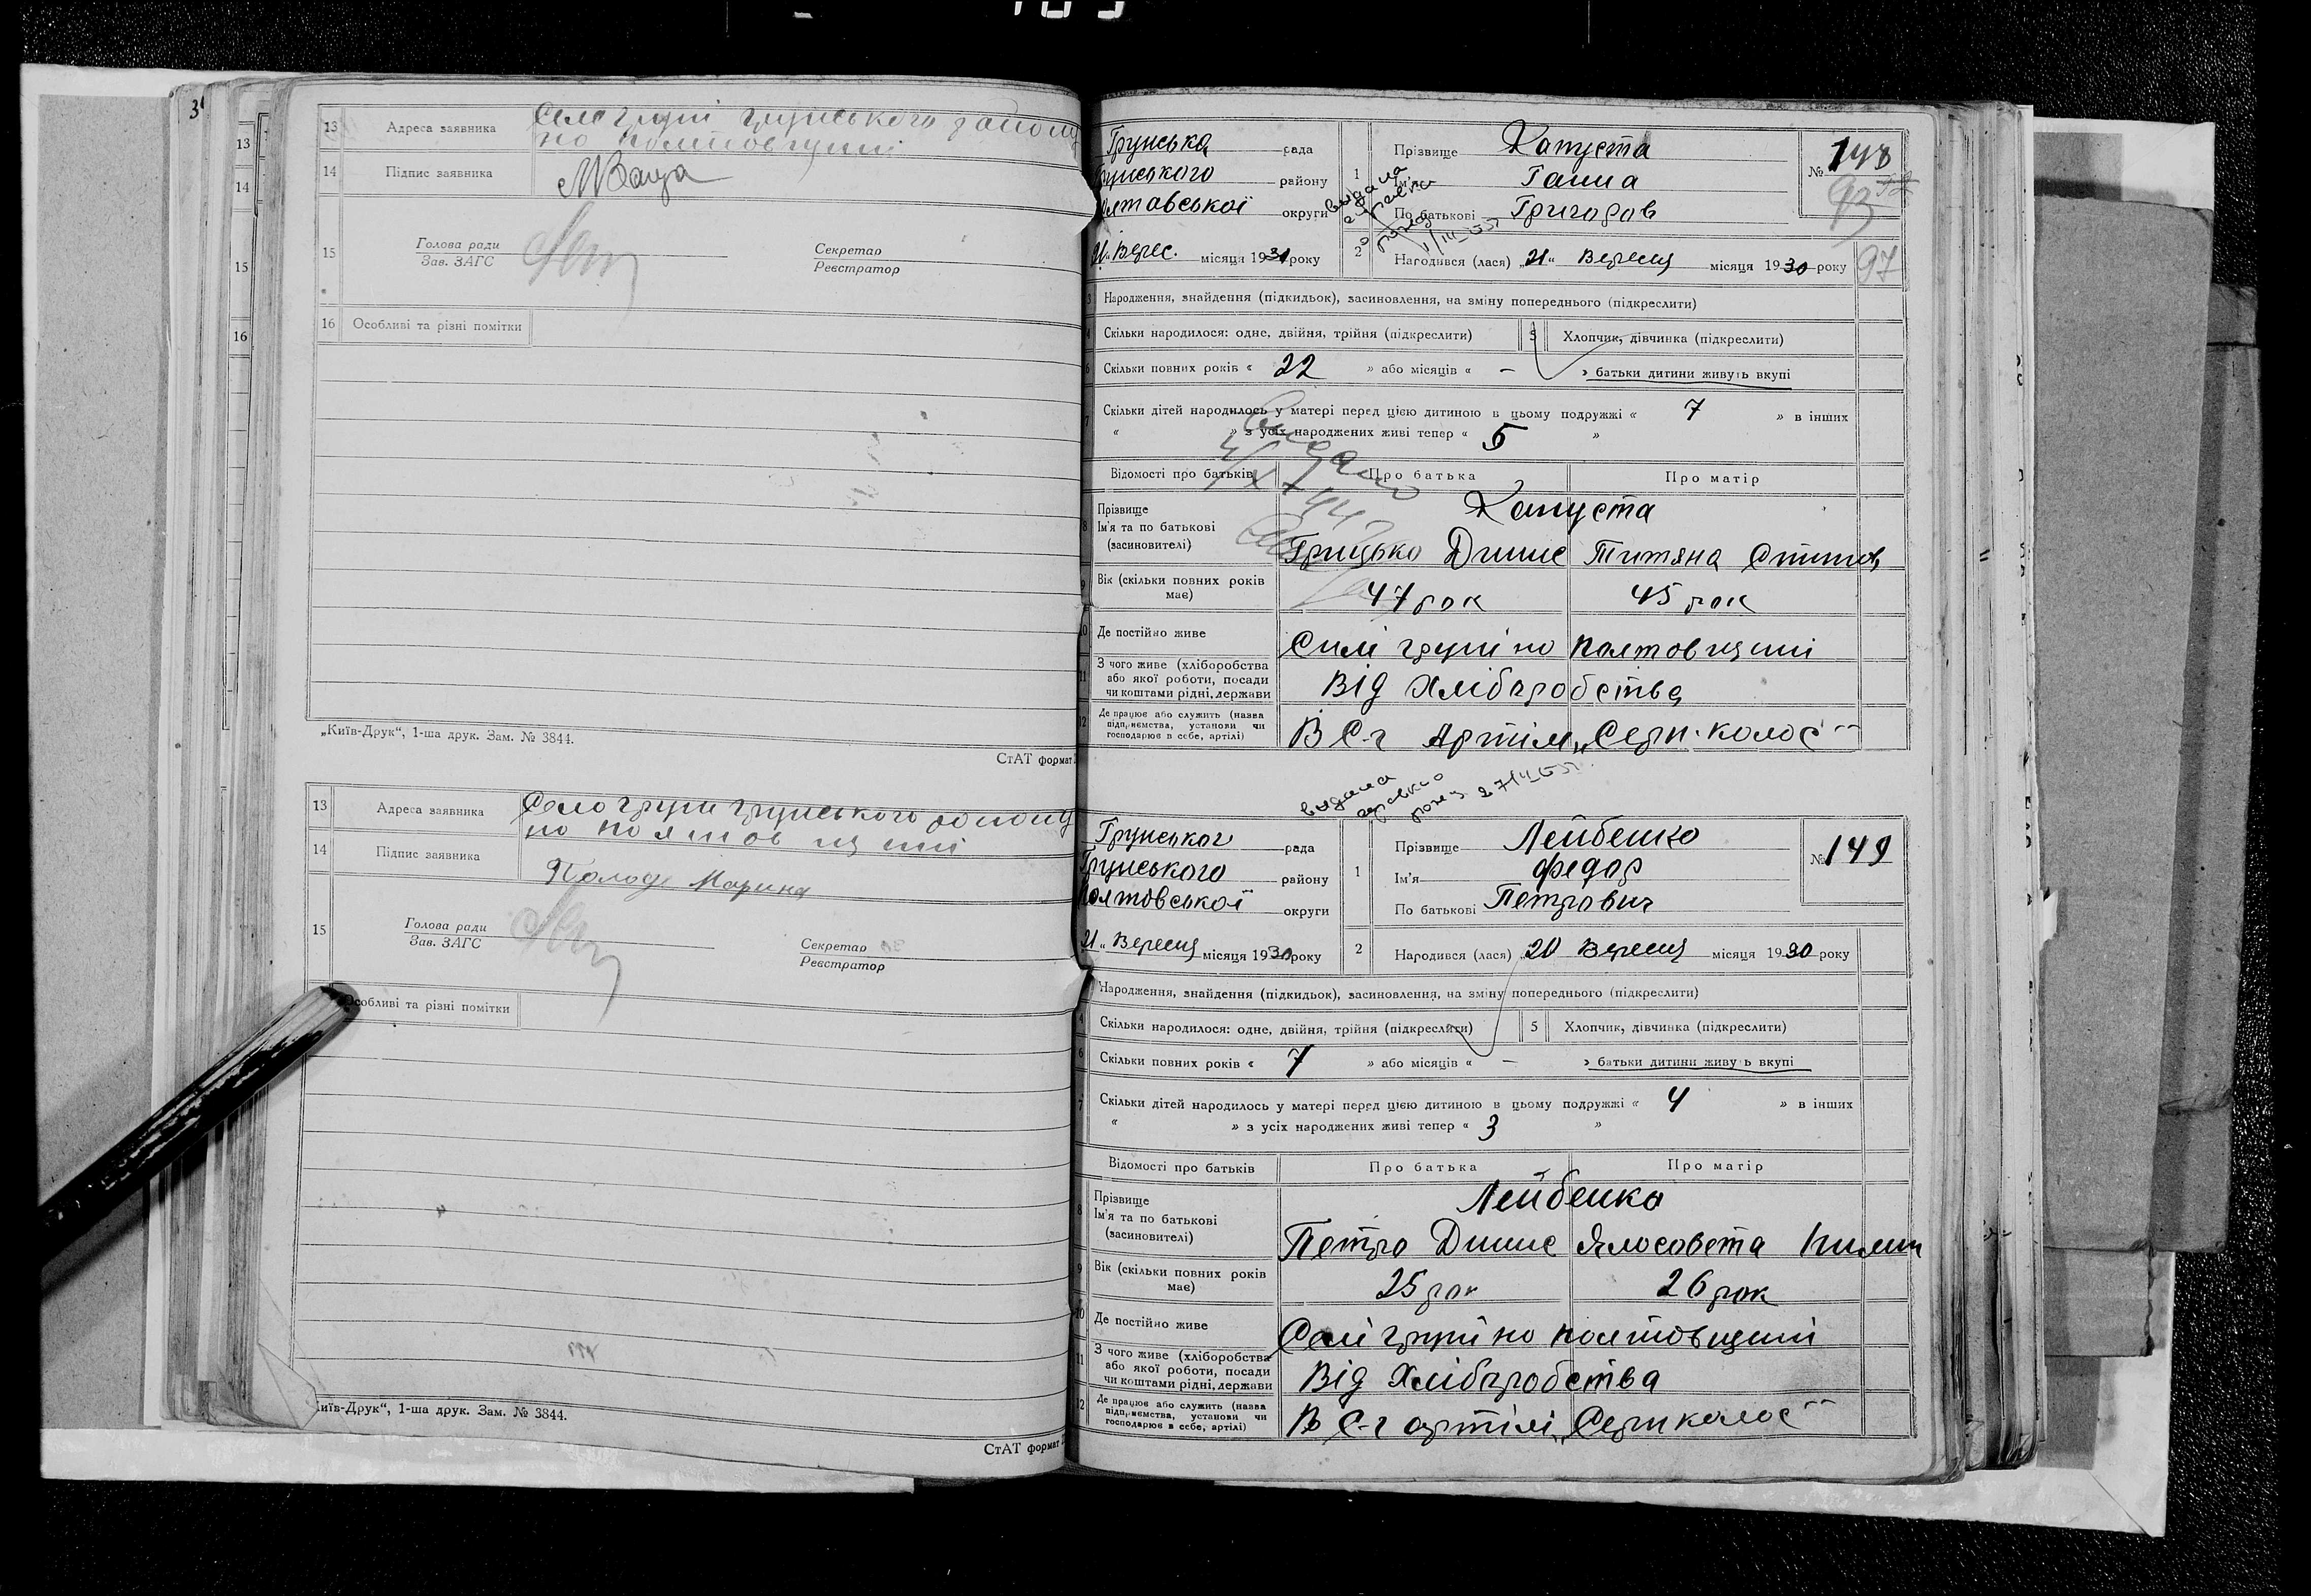 13 Адреса заявника Село груні грунського району
по полтовщині
14 Підпис заявника
15 Голова ради
Зав. ЗАГС
Секретар
Реєстратор
16 Особливі та різні помітки
„Київ-Друк“, 1-ша друк. Зам. № 3844.
СтАТ формат
13 Адреса заявника Село груни грунського
по полтовщині
14 Підпис заявника Марина
15 Голова ради
Зав. ЗАГС
Секретар
Реєстратор
Особливі та різні помітки
Київ-Друк“, 1-ша друк. Зам. № 3844.
СтАТ формат
13
14
15
16
Грунська рада
Грунського району
Полтавської округи
21 „ Верес. місяця 1930 року
1 Прізвище Капуста
Ім'я Ганна
По батькові Григоров
№ 148
93
97
видана
справка
2 Народився (лася) „21“ Вересня місяця 1930 року
3 Народження, знайдення (підкидьок), засиновлення, на зміну попереднього (підкреслити)
4 Скільки народилося: одне, двійня, трійня (підкреслити) 5 Хлопчик, дівчинка (підкреслити)
6 Скільки повних років « 22 » або місяців « — » батьки дитини живуть вкупі
7 Скільки дітей народилось у матері перед цією дитиною в цьому подружжі « 7 » в інших
« » з усіх народжених живі тепер « 5 »
Відомості про батьків Про батька Про матір
8 Прізвище
Ім'я та по батькові
(засиновителі)
Капуста
Грицько Динис Титяна
9 Вік (скільки повних років
має)
47 рок 45 рок
10 Де постійно живе Силі груні но полтовщині
11 З чого живе (хліборобства
або якої роботи, посади
чи коштами рідні, держави
Від Хліборобства
12 Де працює або служить (назва
підприємства, установи чи
господарює в себе, артілі)
В С-г Артіли „Серп. колос“
видана
справка
Грунської рада
Грунського району
Полтовської округи
21 „ Вересня місяця 1930 року
1 Прізвище Лейбенко
Ім'я Федор
По батькові Петрович
№ 149
2 Народився (лася) „20 Вересня місяця 1930 року
Народження, знайдення (підкидьок), засиновлення, на зміну попереднього (підкреслити)
4 Скільки народилося: одне, двійня, трійня (підкреслити) 5 Хлопчик, дівчинка (підкреслити)
6 Скільки повних років « 7 » або місяців « — » батьки дитини живуть вкупі
7 Скільки дітей народилось у матері перед цією дитиною в цьому подружжі « 4 » в інших
« » з усіх народжених живі тепер « 3 »
Відомості про батьків Про батька Про матір
8 Прізвище
Ім'я та по батькові
(засиновителі)
Лейбенко
Петро Динис Ялосовета
9 Вік (скільки повних років
має)
25 рок 26 рок
10 Де постійно живе Селі груні но полтовщині
11 З чого живе (хліборобства
або якої роботи, посади
чи коштами рідні, держави
Від Хліборобства
12 Де працює або служить (назва
підприємства, установи чи
господарює в себе, артілі)
В С-г артілі „Серп колос“